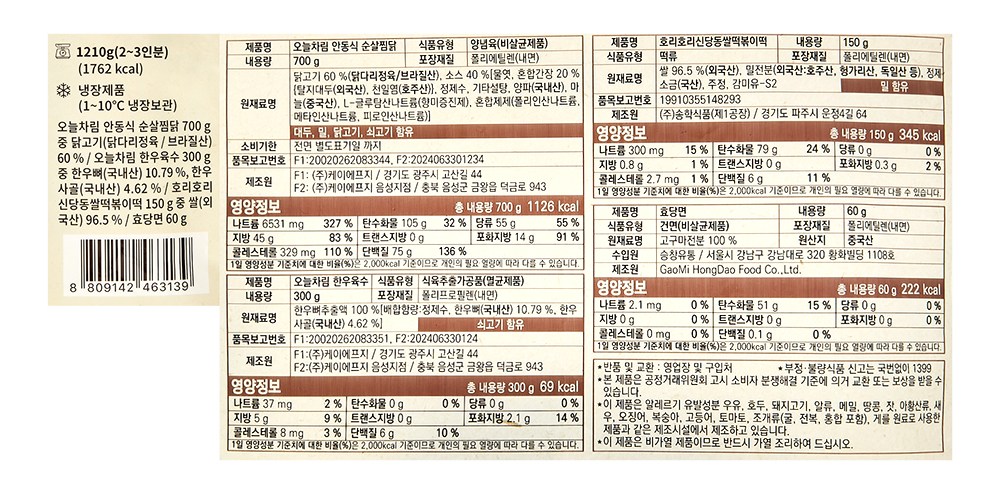 1210g(2~3인분)
(1762 kcal)
냉장제품
(1~10℃ 냉장보관)
오늘차림 안동식 순살찜닭 700 g
중 닭고기(닭다리정육 / 브라질산)
60 % / 오늘차림 한우육수 300 g
중 한우뼈(국내산) 10.79 %, 한우
사골(국내산) 4.62 % / 호리호리
신당동쌀떡볶이떡 150 g 중 쌀(외
국산) 96.5 % / 효당면 60 g
8 809142 463139
제품명 오늘차림 안동식 순살찜닭 식품유형 양념육(비살균제품)
내용량 700 g 포장재질 폴리에틸렌(내면)
원재료명 닭고기 60 %(닭다리정육/브라질산), 소스 40 %[물엿, 혼합간장 20 %
{탈지대두(외국산), 천일염(호주산)}, 정제수, 기타설탕, 양파(국내산), 마
늘(중국산), L-글루탐산나트륨(향미증진제), 혼합제제(폴리인산나트륨,
메타인산나트륨, 피로인산나트륨)]
대두, 밀, 닭고기, 쇠고기 함유
소비기한 전면 별도표기일 까지
품목보고번호 F1:20020262083344, F2:2024063301234
제조원 F1: (주)케이에프지 / 경기도 광주시 고산길 44
F2: (주)케이에프지 음성지점 / 충북 음성군 금왕읍 덕금로 943
영양정보 총 내용량 700 g 1126 kcal
나트륨 6531 mg 327 % 탄수화물 105 g 32 % 당류 55 g 55 %
지방 45 g 83 % 트랜스지방 0 g 포화지방 14 g 91 %
콜레스테롤 329 mg 110 % 단백질 75 g 136 %
1일 영양성분 기준치에 대한 비율(%)은 2,000kcal 기준이므로 개인의 필요 열량에 따라 다를 수 있습니다.
제품명 오늘차림 한우육수 식품유형 식육추출가공품(멸균제품)
내용량 300 g 포장재질 폴리프로필렌(내면)
원재료명 한우뼈추출액 100 %[배합함량:정제수, 한우뼈(국내산) 10.79 %, 한우
사골(국내산) 4.62 %] 쇠고기 함유
품목보고번호 F1:20020262083351, F2:202406330124
제조원 F1:(주)케이에프지 / 경기도 광주시 고산길 44
F2:(주)케이에프지 음성지점 / 충북 음성군 금왕읍 덕금로 943
영양정보 총 내용량 300 g 69 kcal
나트륨 37 mg 2 % 탄수화물 0 g 0 % 당류 0 g 0 %
지방 5 g 9 % 트랜스지방 0 g 포화지방 2.1 g 14 %
콜레스테롤 8 mg 3 % 단백질 6 g 10 %
1일 영양성분 기준치에 대한 비율(%)은 2,000kcal 기준이므로 개인의 필요 열량에 따라 다를 수 있습니다.
제품명 호리호리신당동쌀떡볶이떡 내용량 150 g
식품유형 떡류 포장재질 폴리에틸렌(내면)
원재료명 쌀 96.5 %(외국산), 밀전분(외국산:호주산, 헝가리산, 독일산 등), 정제
소금(국산), 주정, 감미유-S2 밀 함유
품목보고번호 19910355148293
제조원 (주)송학식품(제1공장) / 경기도 파주시 운정4길 64
영양정보 총 내용량 150 g 345 kcal
나트륨 300 mg 15 % 탄수화물 79 g 24 % 당류 0 g 0 %
지방 0.8 g 1 % 트랜스지방 0 g 포화지방 0.3 g 2 %
콜레스테롤 2.7 mg 1 % 단백질 6 g 11 %
1일 영양성분 기준치에 대한 비율(%)은 2,000kcal 기준이므로 개인의 필요 열량에 따라 다를 수 있습니다.
제품명 효당면 내용량 60 g
식품유형 건면(비살균제품) 포장재질 폴리에틸렌(내면)
원재료명 고구마전분 100 % 원산지 중국산
수입원 승창유통 / 서울시 강남구 강남대로 320 황화빌딩 1108호
제조원 GaoMi HongDao Food Co.,Ltd.
영양정보 총 내용량 60 g 222 kcal
나트륨 2.1 mg 0 % 탄수화물 51 g 15 % 당류 0 g 0 %
지방 0 g 0 % 트랜스지방 0 g 포화지방 0 g 0 %
콜레스테롤 0 mg 0 % 단백질 0.1 g 0 %
1일 영양성분 기준치에 대한 비율(%)은 2,000kcal 기준이므로 개인의 필요 열량에 따라 다를 수 있습니다.
*반품 및 교환 : 영업장 및 구입처 *부정·불량식품 신고는 국번없이 1399
*본 제품은 공정거래위원회 고시 소비자 분쟁해결 기준에 의거 교환 또는 보상을 받을 수
있습니다.
*이 제품은 알레르기 유발성분 우유, 호두, 돼지고기, 알류, 메밀, 땅콩, 잣, 아황산류, 새
우, 오징어, 복숭아, 고등어, 토마토, 조개류(굴, 전복, 홍합 포함), 게를 원료로 사용한
제품과 같은 제조시설에서 제조하고 있습니다.
*이 제품은 비가열 제품이므로 반드시 가열 조리하여 드십시오.